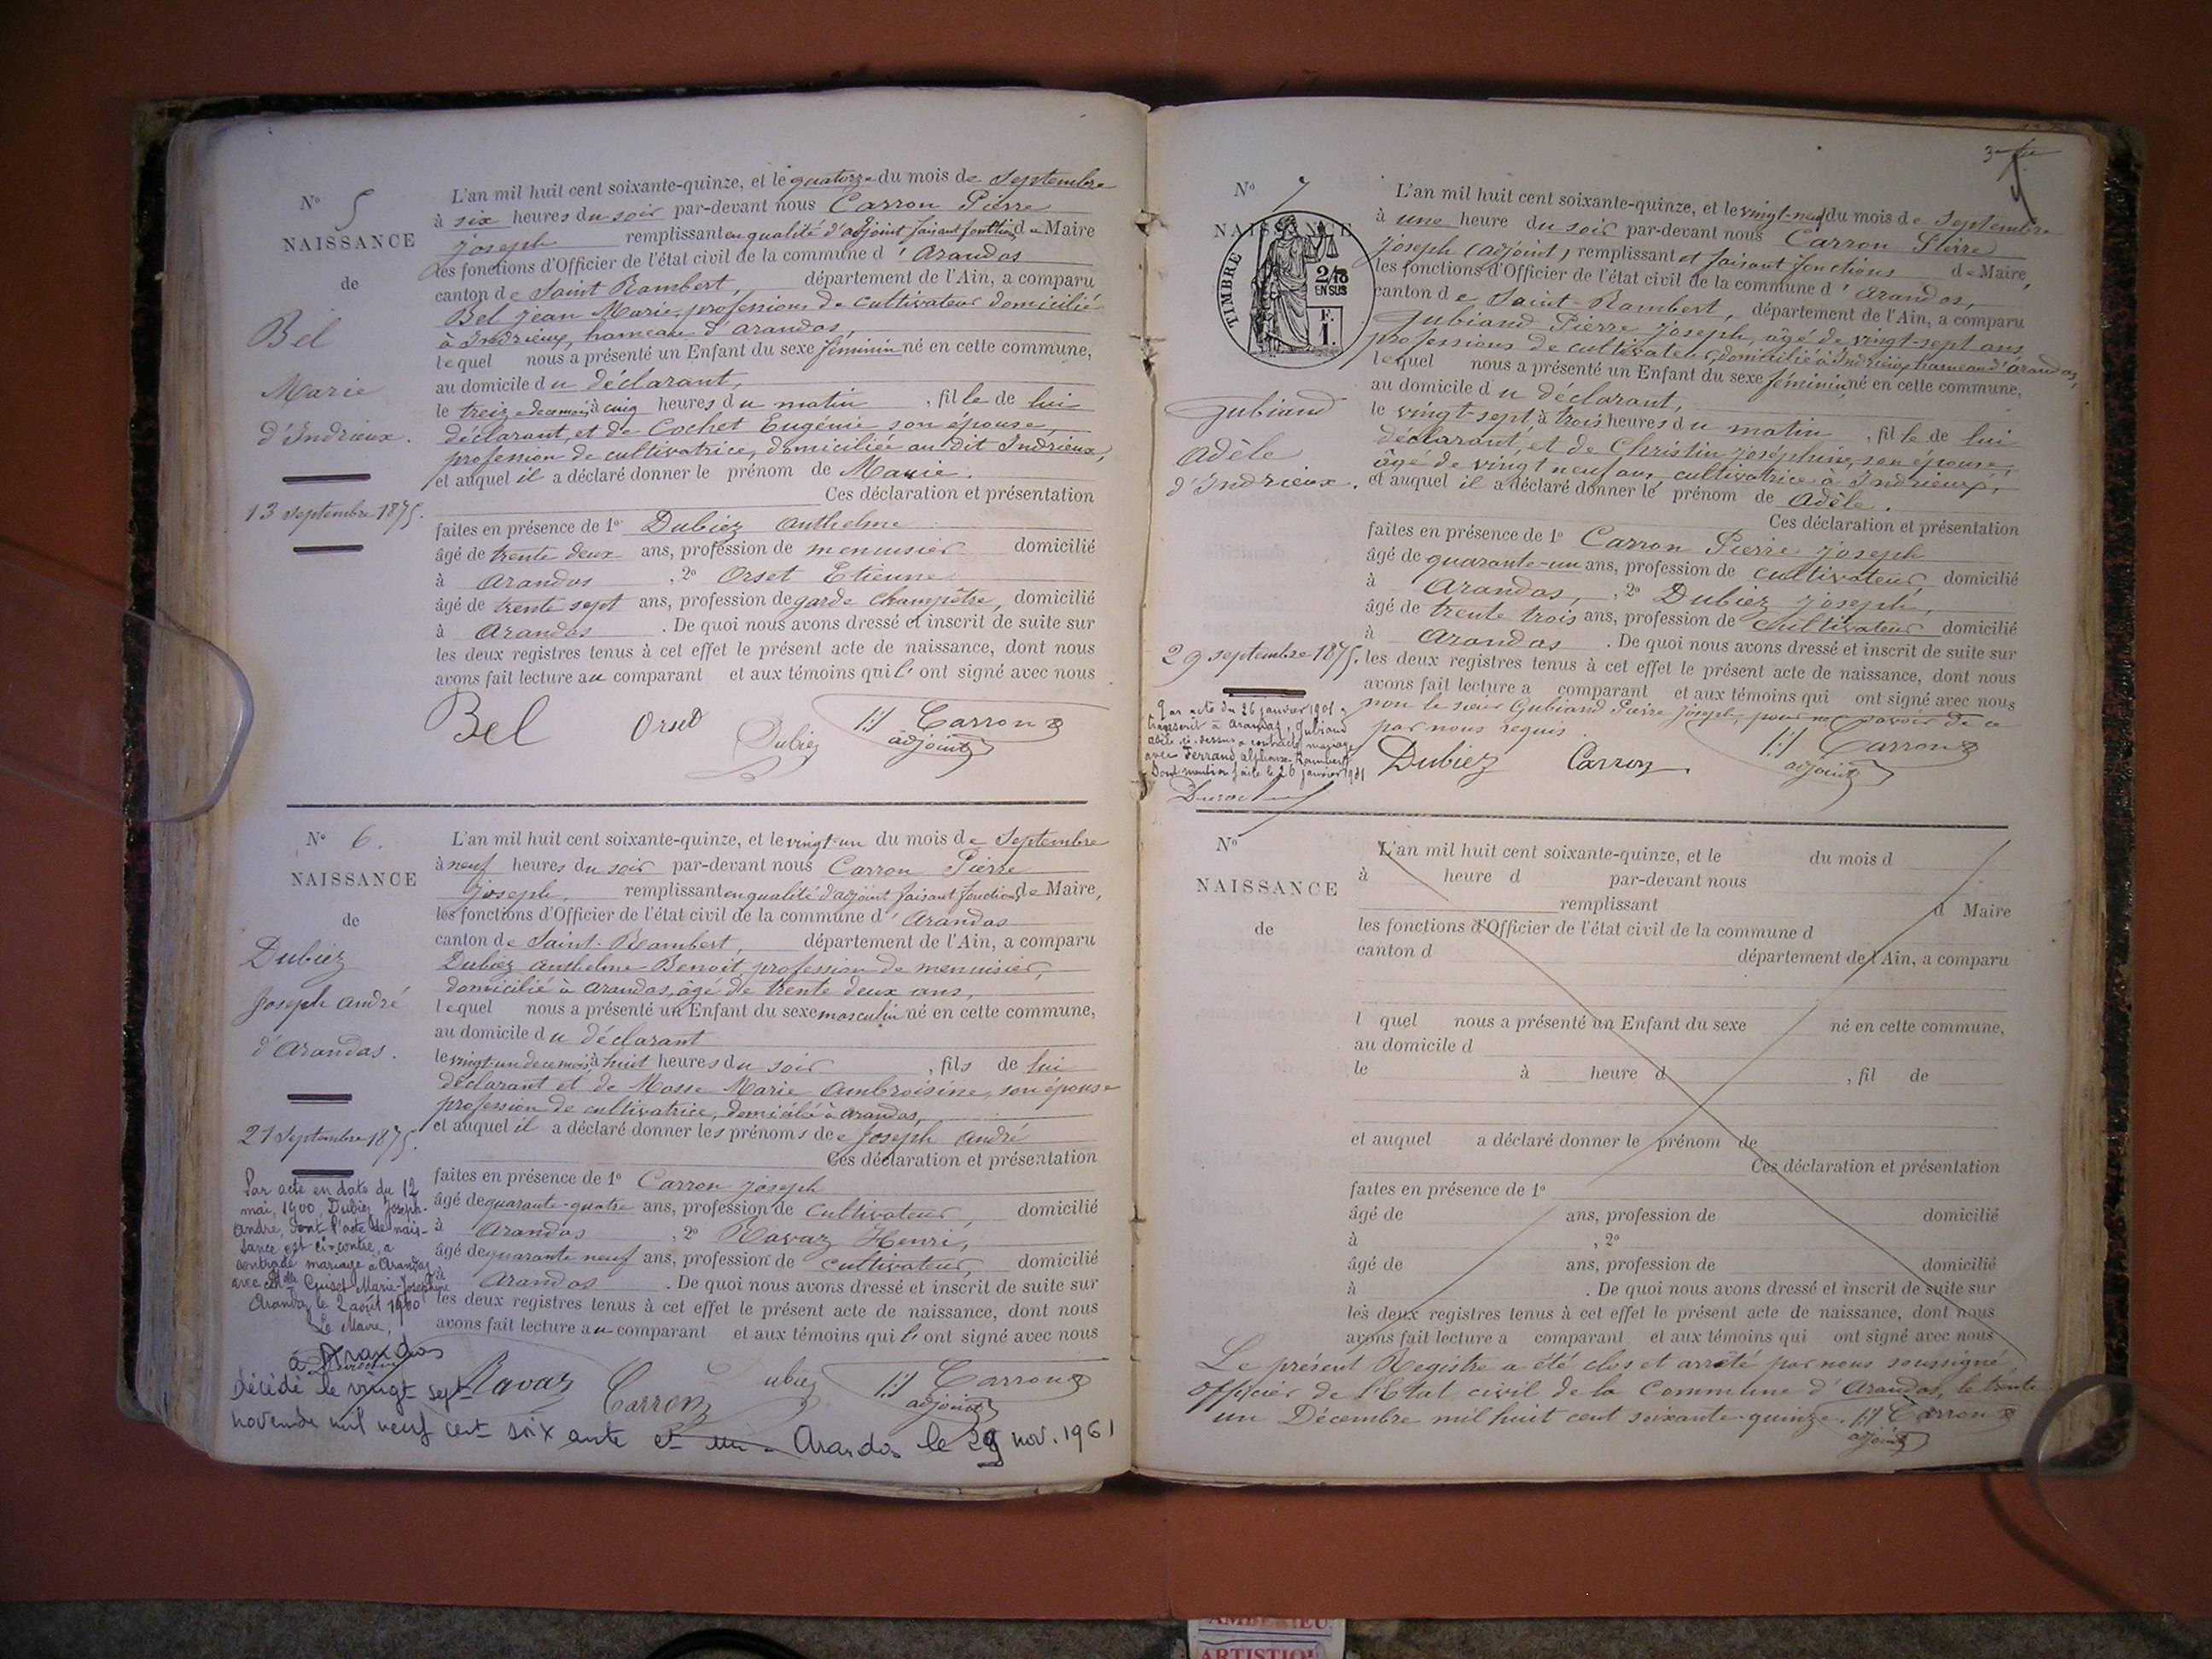 N° 5
NAISSANCE
de
Bel
Marie
d'Indrieux.
13 septembre 1875.
L'an mil huit cent soixante-quinze, et le quatorze du mois de Septembre
à six heures du soir par-devant nous Carron Pierre
joseph remplissant en qualité d'adjoint faisant fonctions de Maire
les fonctions d'Officier de l'état civil de la commune d'Arandas
canton de Saint Rambert, département de l'Ain, a comparu
Bel Jean Marie, profession de cultivateur domicilié
à Indrieux, hameau d'arandas,
lequel nous a présenté un Enfant du sexe féminin né en cette commune,
au domicile du déclarant,
le treize de ce mois à cinq heures du matin, fille de lui
déclarant, et de Cochet Eugénie son épouse,
profession de cultivatrice, domiciliée au dit Indrieux,
et auquel il a déclaré donner le prénom de Marie.
Ces déclaration et présentation
faites en présence de 1° Dubiez Anthelme
âgé de trente deux ans, profession de menuisier domicilié
à Arandas, 2° Orset Etienne
âgé de trente sept ans, profession de garde Champêtre, domicilié
à Arandas. De quoi nous avons dressé et inscrit de suite sur
les deux registres tenus à cet effet le présent acte de naissance, dont nous
avons fait lecture au comparant et aux témoins qui l'ont signé avec nous
Bel Orset Dubiez Carron
adjoint
N° 6.
NAISSANCE
de
Dubiez
Joseph André
d'Arandas.
21 Septembre 1875.
Par acte en date du 12
mai, 1900, Dubiez Joseph-
André, dont l'acte de nais-
sance est ci-contre, a
contracté mariage à Arandas
avec Guiset Marie-Josephine
Arandas le 2 août 1900
Le Maire,
L'an mil huit cent soixante-quinze, et le vingt-un du mois de Septembre
à neuf heures du soir par-devant nous Carron Pierre
joseph, remplissant en qualité d'adjoint faisant fonctions de Maire,
les fonctions d'Officier de l'état civil de la commune d'Arandas
canton de Saint-Rambert, département de l'Ain, a comparu
Dubiez Anthelme Benoit, profession de menuisier,
domicilié à Arandas, âgé de trente deux ans,
lequel nous a présenté un Enfant du sexe masculin né en cette commune,
au domicile du déclarant
le vingt-un de ce mois à huit heures du soir, fils de lui
déclarant et de Masse Marie Ambroisine, son épouse
profession de cultivatrice, domicilié à Arandas,
et auquel il a déclaré donner les prénoms de Joseph André
Ces déclaration et présentation
faites en présence de 1° Carron Joseph
âgé de quarante-quatre ans, profession de cultivateur, domicilié
à Arandas, 2° Ravaz Henri,
âgé de quarante neuf ans, profession de cultivateur, domicilié
à Arandas. De quoi nous avons dressé et inscrit de suite sur
les deux registres tenus à cet effet le présent acte de naissance, dont nous
avons fait lecture au comparant et aux témoins qui l'ont signé avec nous
Ravaz Carron Dubiez Carron
adjoint
à Arandas
Décédé le vingt sept
novembre mil neuf cent soixante et un. Arandas le 29 nov. 1961
3e
N° 7
NAISSANCE
TIMBRE
2/10
EN SUS
F.
1.
Gubiand
Adèle
d'Indrieux.
29 septembre 1875.
Par acte du 26 janvier 1901,
transcrit à Arandas, Gubiand
Adèle ci-dessus a contracté mariage
avec Ferrand Alphonse Rambert
Dont mention faite le 26 janvier 1901
L'an mil huit cent soixante-quinze, et le vingt-neuf du mois de Septembre
à une heure du soir par-devant nous Carron Pierre
joseph (adjoint) remplissant et faisant fonctions de Maire,
les fonctions d'Officier de l'état civil de la commune d'Arandas,
canton de Saint-Rambert, département de l'Ain, a comparu
Gubiand Pierre joseph, âgé de vingt-sept ans
professions de cultivateur, domicilié à Indrieux hameau d'arandas,
lequel nous a présenté un Enfant du sexe féminin né en cette commune,
au domicile du déclarant,
le vingt-sept, à trois heures du matin, fille de lui
déclarant, et de Christin Joséphine, son épouse,
âgé de vingt neuf ans, cultivatrice à Indrieux,
et auquel il a déclaré donner le prénom de Adèle.
Ces déclaration et présentation
faites en présence de 1° Carron Pierre joseph
âgé de quarante-un ans, profession de cultivateur, domicilié
à Arandas, 2° Dubiez joseph,
âgé de trente trois ans, profession de cultivateur domicilié
à Arandas. De quoi nous avons dressé et inscrit de suite sur
les deux registres tenus à cet effet le présent acte de naissance, dont nous
avons fait lecture a comparant et aux témoins qui ont signé avec nous
non le sieur Gubiand Pierre joseph, pour ne savoir de ce
par nous requis.
Dubiez Carron Carron
adjoint
N°
NAISSANCE
de
L'an mil huit cent soixante-quinze, et le du mois d
à heure d par-devant nous
remplissant d Maire
les fonctions d'Officier de l'état civil de la commune d
canton d département de l'Ain, a comparu
l quel nous a présenté un Enfant du sexe né en cette commune,
au domicile d
le à heure d , fil de
et auquel a déclaré donner le prénom de
Ces déclaration et présentation
faites en présence de 1°
âgé de ans, profession de domicilié
à , 2°
âgé de ans, profession de domicilié
à . De quoi nous avons dressé et inscrit de suite sur
les deux registres tenus à cet effet le présent acte de naissance, dont nous
avons fait lecture a comparant et aux témoins qui ont signé avec nous
Le présent Registre a été clos et arrêté par nous soussigné,
officier de l'Etat civil de la Commune d'Arandas, le trente
un Décembre mil huit cent soixante-quinze. Carron
adjoint
AMBERIEU
ARTISTIQU